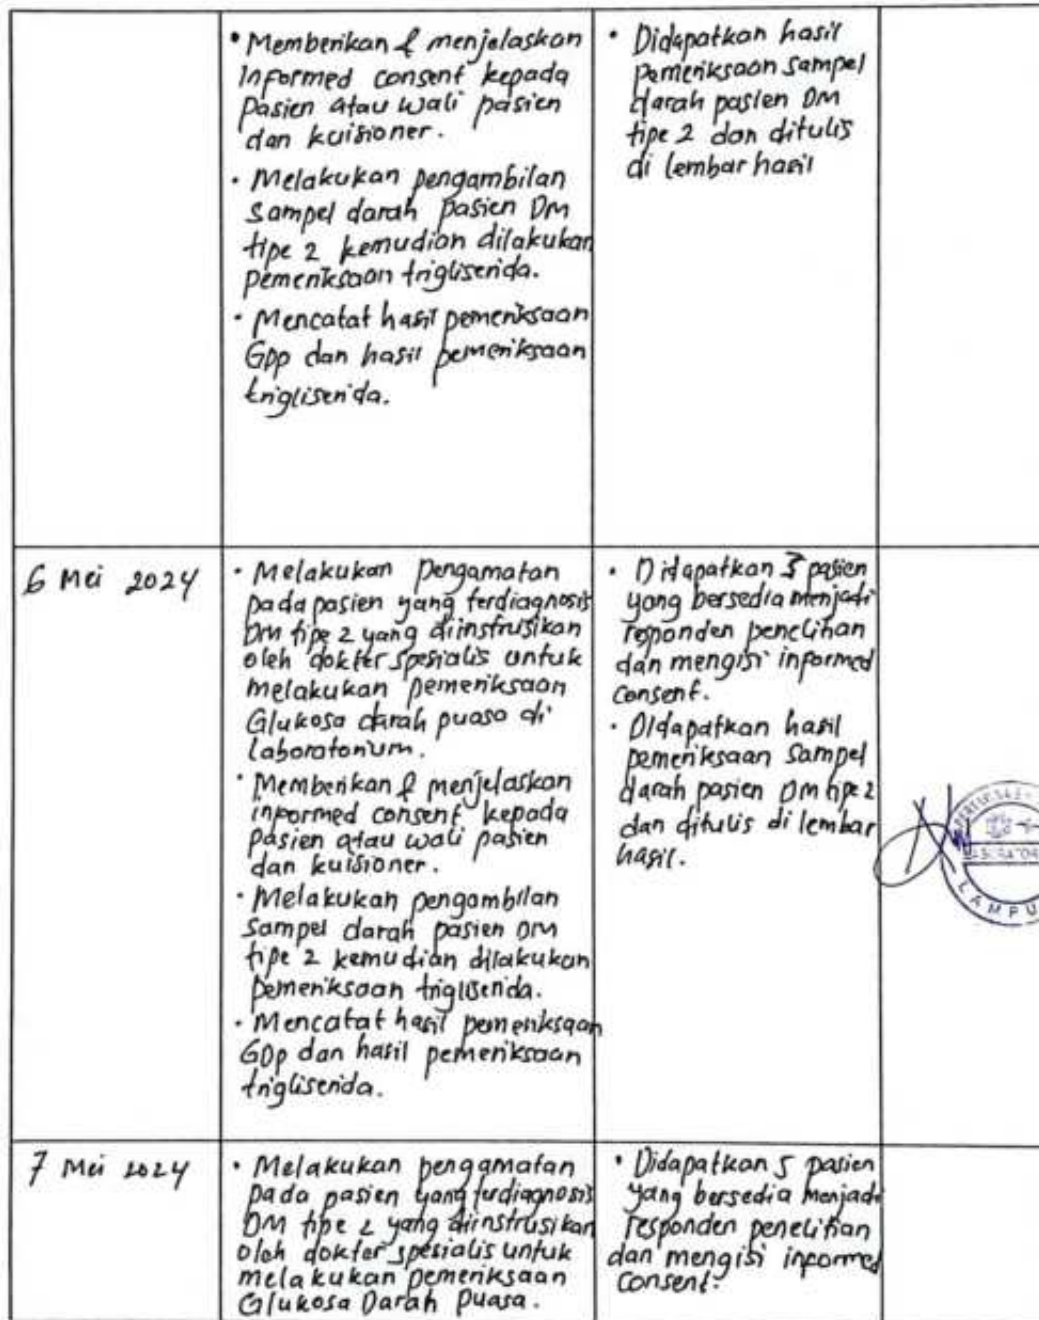 • Memberikan & menjelaskan
informed consent kepada
pasien atau wali pasien
dan kuisioner.
• Melakukan pengambilan
sampel darah pasien DM
tipe 2 kemudian dilakukan
pemeriksaan trigliserida.
• Mencatat hasil pemeriksaan
GDP dan hasil pemeriksaan
trigliserida.
• Didapatkan hasil
pemeriksaan sampel
darah pasien DM
tipe 2 dan ditulis
di lembar hasil
6 Mei 2024
• Melakukan pengamatan
pada pasien yang terdiagnosis
DM tipe 2 yang diinstrusikan
oleh dokter spesialis untuk
melakukan pemeriksaan
Glukosa darah puasa di
laboratorium.
• Memberikan & menjelaskan
informed consent kepada
pasien atau wali pasien
dan kuisioner.
• Melakukan pengambilan
sampel darah pasien DM
tipe 2 kemudian dilakukan
pemeriksaan trigliserida.
• Mencatat hasil pemeriksaan
GDP dan hasil pemeriksaan
trigliserida.
• Didapatkan pasien
yang bersedia menjadi
responden penelitian
dan mengisi informed
consent.
• Didapatkan hasil
pemeriksaan sampel
darah pasien DM tipe 2
dan ditulis di lembar
hasil.
LAMPU
7 Mei 2024
• Melakukan pengamatan
pada pasien yang terdiagnosis
DM tipe 2 yang diinstrusikan
oleh dokter spesialis untuk
melakukan pemeriksaan
Glukosa Darah Puasa.
• Didapatkan 5 pasien
yang bersedia menjadi
responden penelitian
dan mengisi informed
consent.